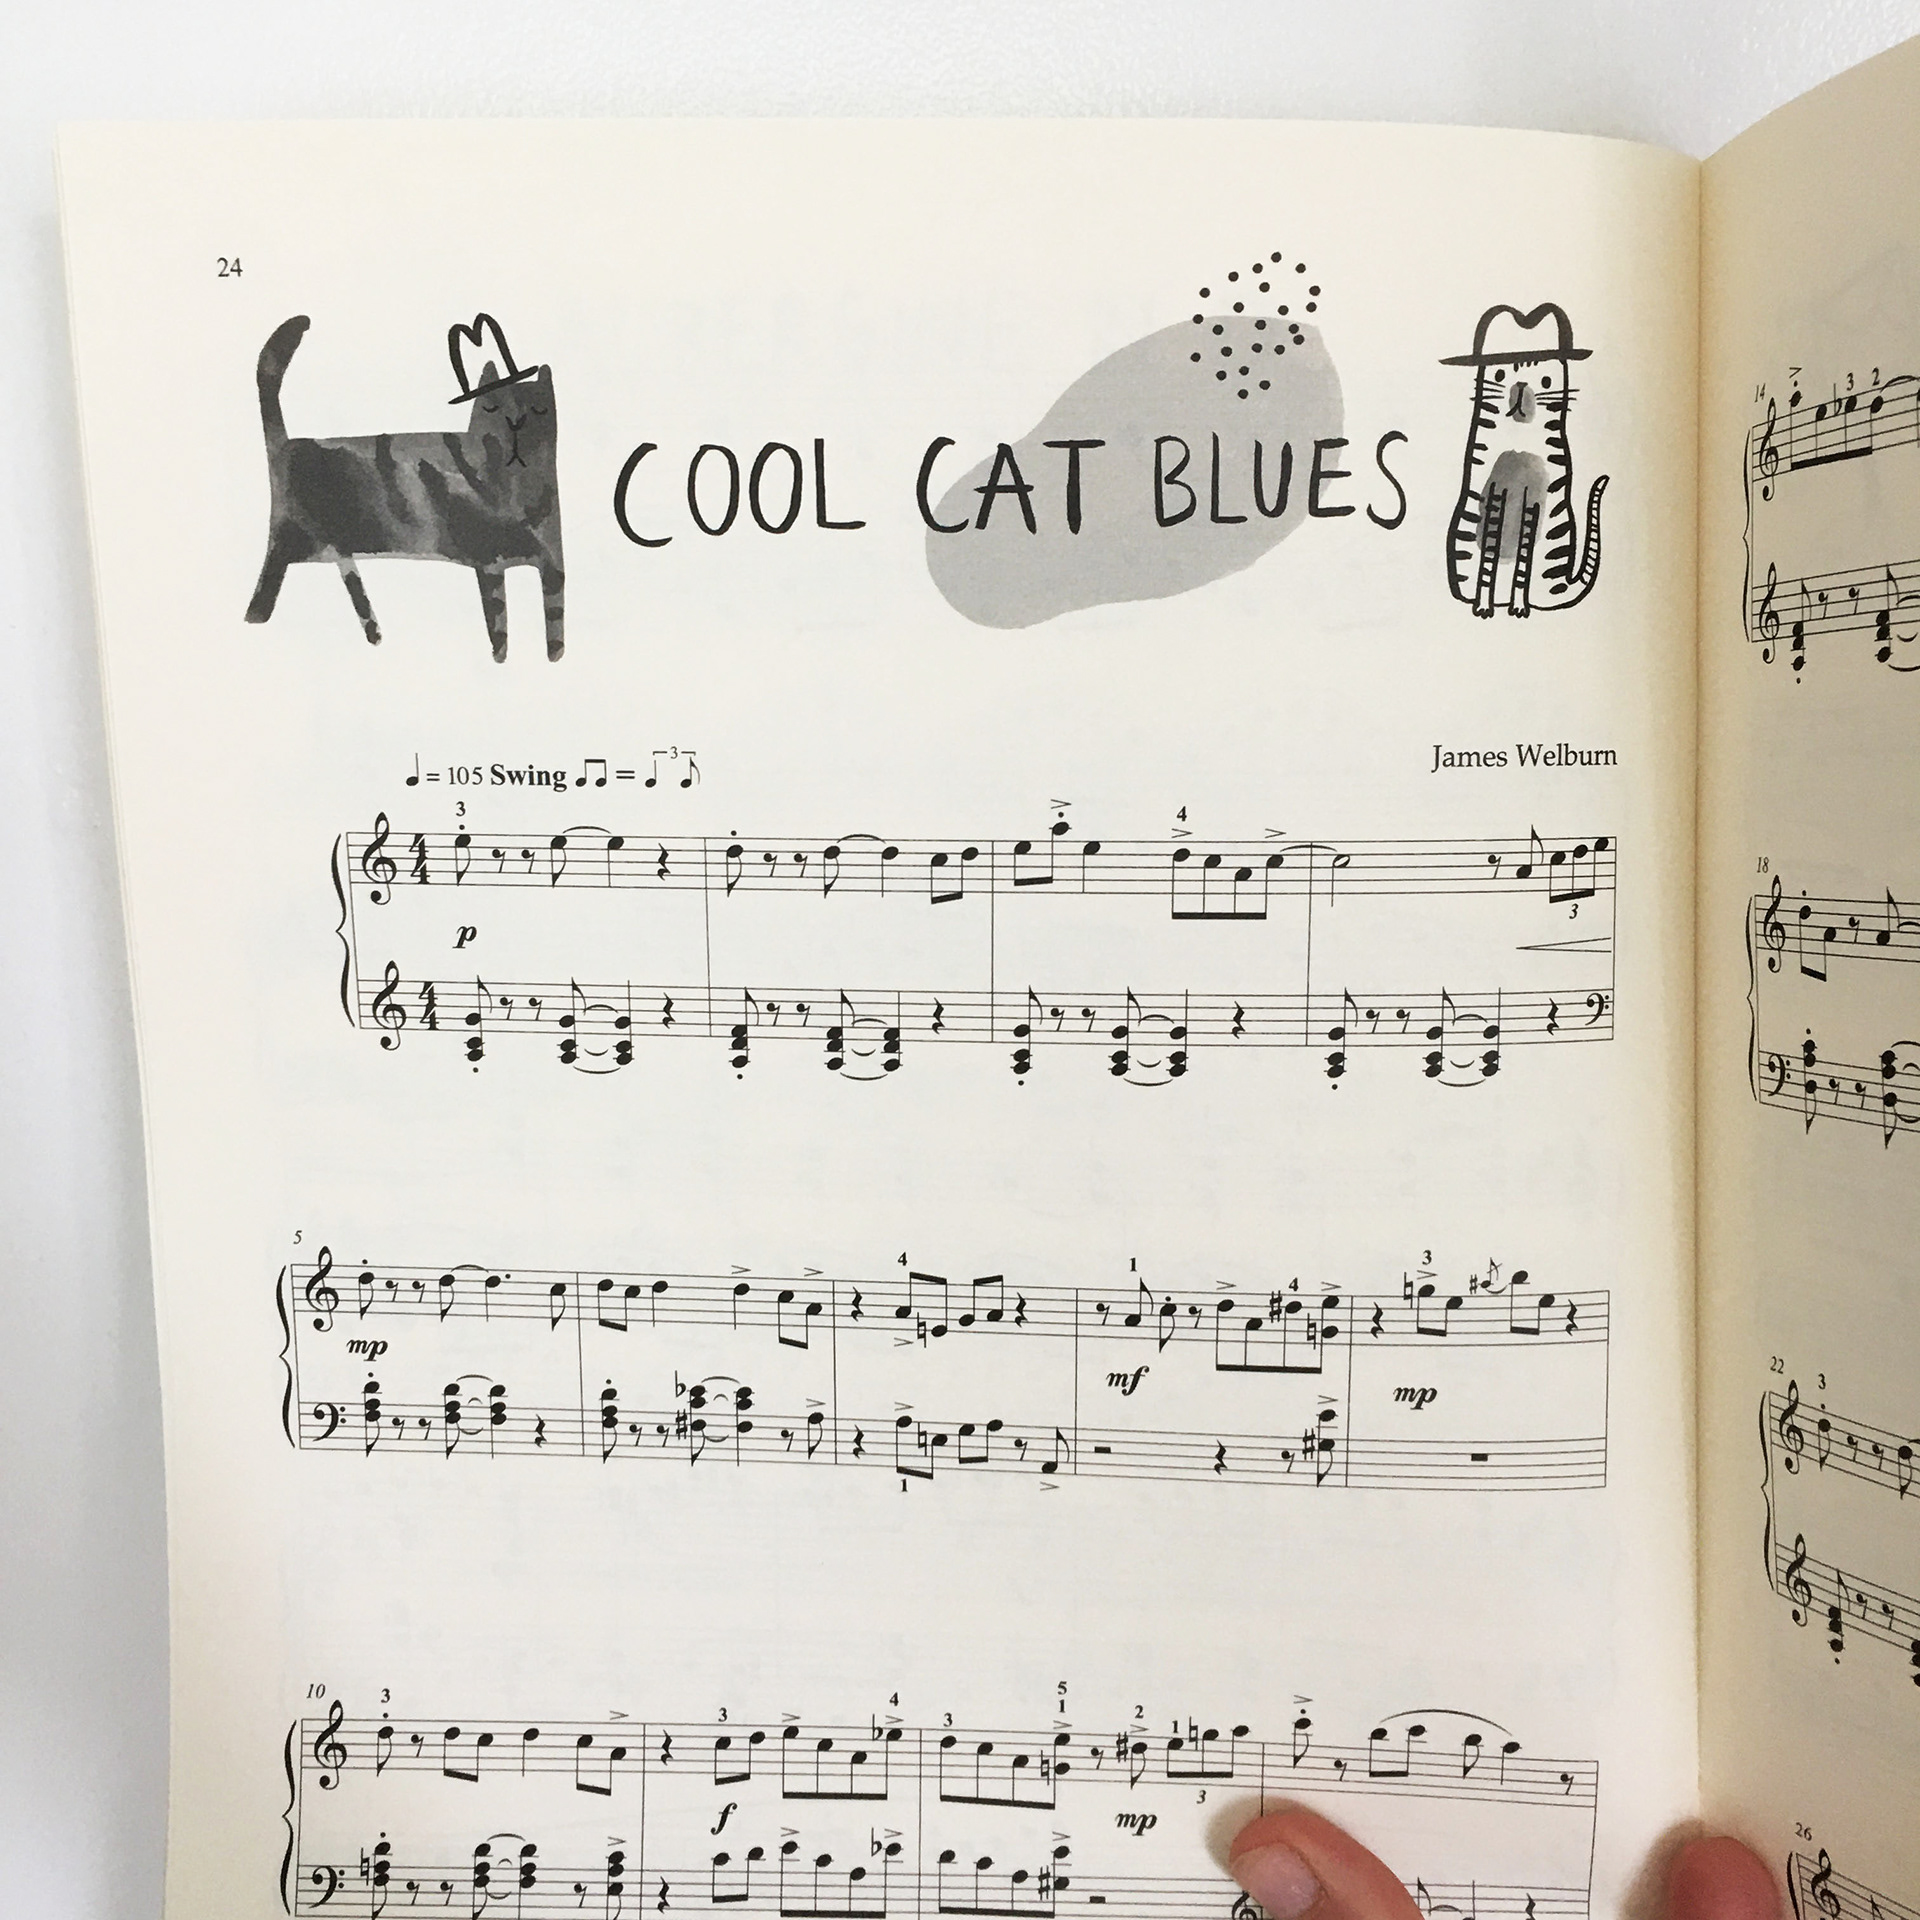 24
COOL CAT BLUES
James Welburn
♩ = 105 Swing ♫ = ♩ 3 ♪
3
4
4 4
p
3
4 4
5
4
1
4
3
mp
mf
mp
1
10
3
3
4
3
5
1
2
1
f
mp
3
14
3 2
18
22
3
26